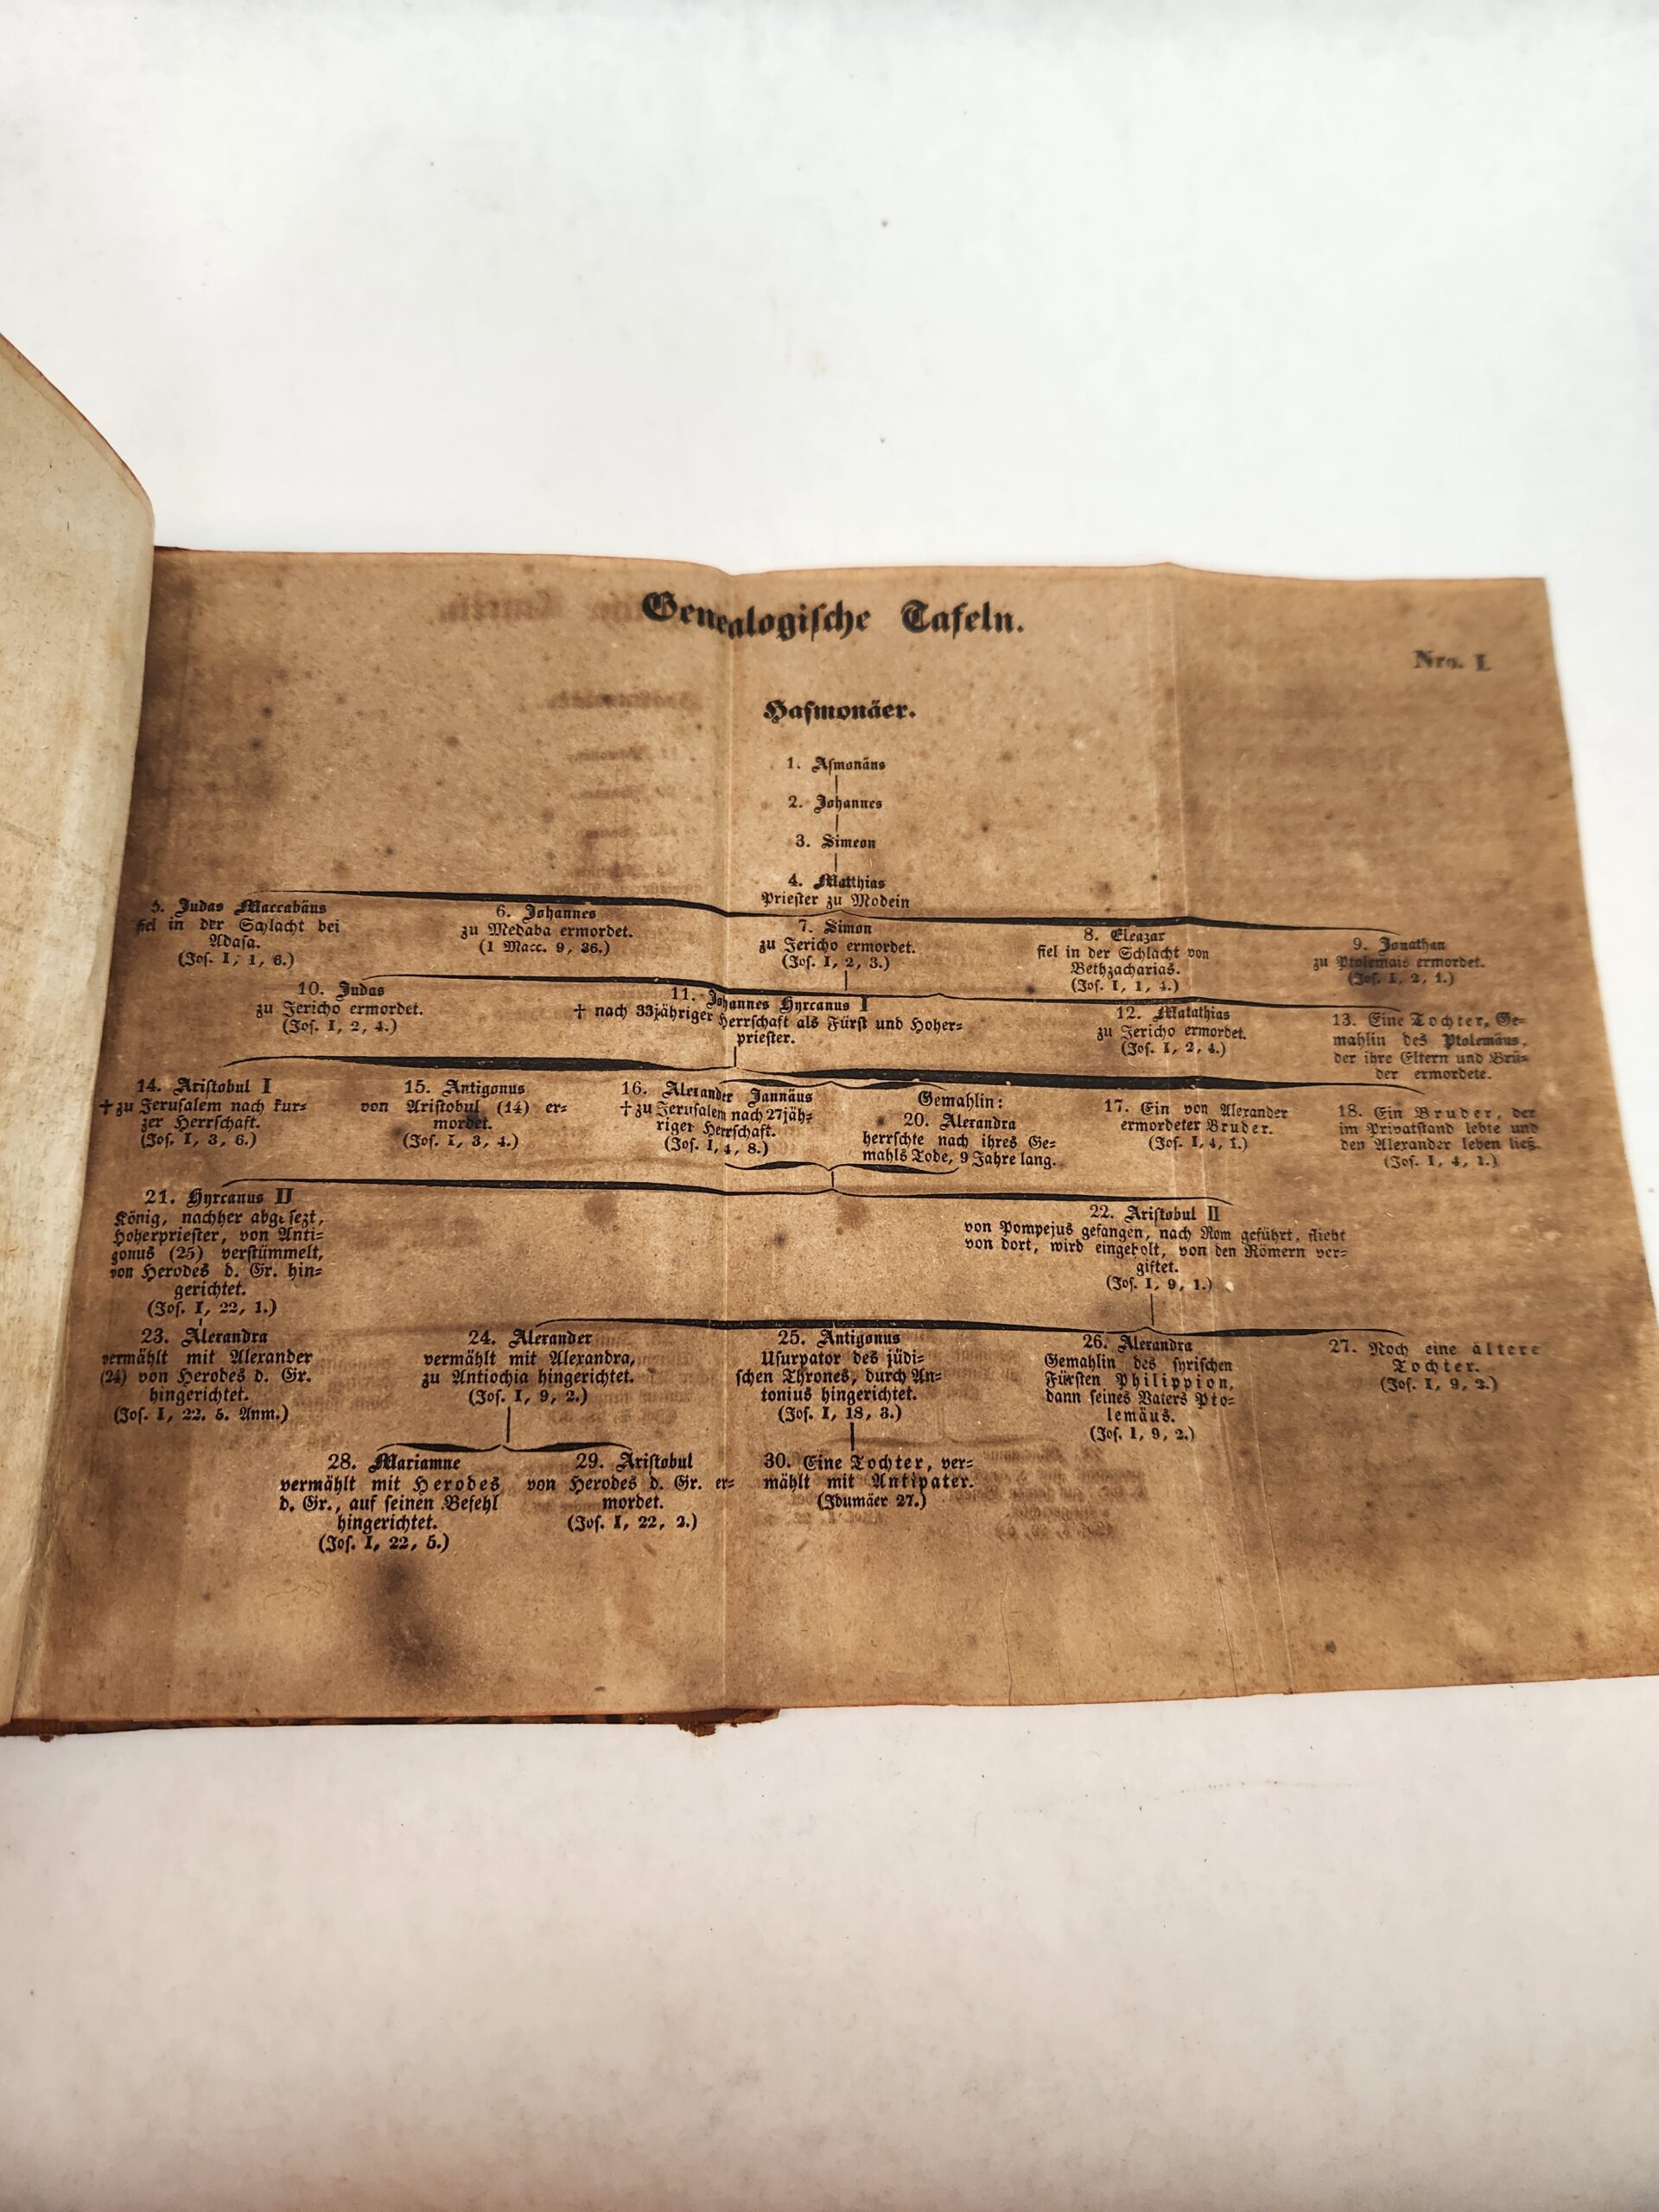 Genealogische Tafeln.
Nro. I.
Hasmonäer.
1. Asmonäus
2. Johannes
3. Simeon
4. Matthias
Priester zu Modein
5. Judas Maccabäus
fiel in der Schlacht bei
Adasa.
(Jos. I, 1, 6.)
6. Johannes
zu Medaba ermordet.
(1 Macc. 9, 36.)
7. Simon
zu Jericho ermordet.
(Jos. I, 2, 3.)
8. Eleazar
fiel in der Schlacht von
Bethzacharias.
(Jos. I, 1, 4.)
9. Jonathan
zu Ptolemais ermordet.
(Jos. I, 2, 1.)
10. Judas
zu Jericho ermordet.
(Jos. I, 2, 4.)
11. Johannes Hyrcanus I
† nach 33jähriger Herrschaft als Fürst und Hoher-
priester.
12. Matathias
zu Jericho ermordet.
(Jos. I, 2, 4.)
13. Eine Tochter, Ge-
mahlin des Ptolemäus,
der ihre Eltern und Brü-
der ermordete.
14. Aristobul I
† zu Jerusalem nach kur-
zer Herrschaft.
(Jos. I, 3, 6.)
15. Antigonus
von Aristobul (14) er-
mordet.
(Jos. I, 3, 4.)
16. Alexander Jannäus
† zu Jerusalem nach 27jäh-
riger Herrschaft.
(Jos. I, 4, 8.)
Gemahlin:
20. Alexandra
herrschte nach ihres Ge-
mahls Tode, 9 Jahre lang.
17. Ein von Alexander
ermordeter Bruder.
(Jos. I, 4, 1.)
18. Ein Bruder, der
im Privatstand lebte und
den Alexander leben ließ.
(Jos. I, 4, 1.)
21. Hyrcanus II
König, nachher abgesezt,
Hoherpriester, von Anti-
gonus (25) verstümmelt,
von Herodes d. Gr. hin-
gerichtet.
(Jos. I, 22, 1.)
22. Aristobul II
von Pompejus gefangen, nach Rom geführt, flieht
von dort, wird eingeholt, von den Römern ver-
giftet.
(Jos. I, 9, 1.)
23. Alexandra
vermählt mit Alexander
(24) von Herodes d. Gr.
hingerichtet.
(Jos. I, 22. 5. Anm.)
24. Alexander
vermählt mit Alexandra,
zu Antiochia hingerichtet.
(Jos. I, 9, 2.)
25. Antigonus
Usurpator des jüdi-
schen Thrones, durch An-
tonius hingerichtet.
(Jos. I, 18, 3.)
26. Alexandra
Gemahlin des syrischen
Fürsten Philippion,
dann seines Vaters Pto-
lemäus.
(Jos. I, 9, 2.)
27. Noch eine ältere
Tochter.
(Jos. I, 9, 2.)
28. Mariamne
vermählt mit Herodes
d. Gr., auf seinen Befehl
hingerichtet.
(Jos. I, 22, 5.)
29. Aristobul
von Herodes d. Gr. er-
mordet.
(Jos. I, 22, 2.)
30. Eine Tochter, ver-
mählt mit Antipater.
(Idumäer 27.)